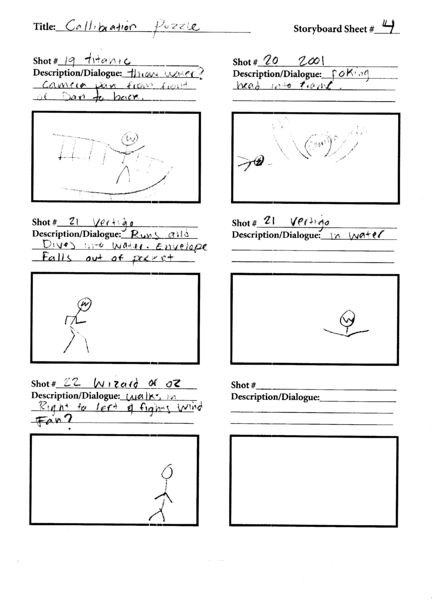 Title: Callibration Puzzle
Storyboard Sheet # 4
Shot # 19 Titanic
Description/Dialogue: throw water?
Camera pan from front
of Dan to back.
Shot # 20 2001
Description/Dialogue: Poking
head into frame.
Shot # 21 Vertigo
Description/Dialogue: Runs and
Dives into water. Envelope
Falls out of pocket
Shot # 21 Vertigo
Description/Dialogue: in water
Shot # 22 Wizard of oz
Description/Dialogue: walks in
Right to left & fights wind
Fan?
Shot #
Description/Dialogue:
W
W
W